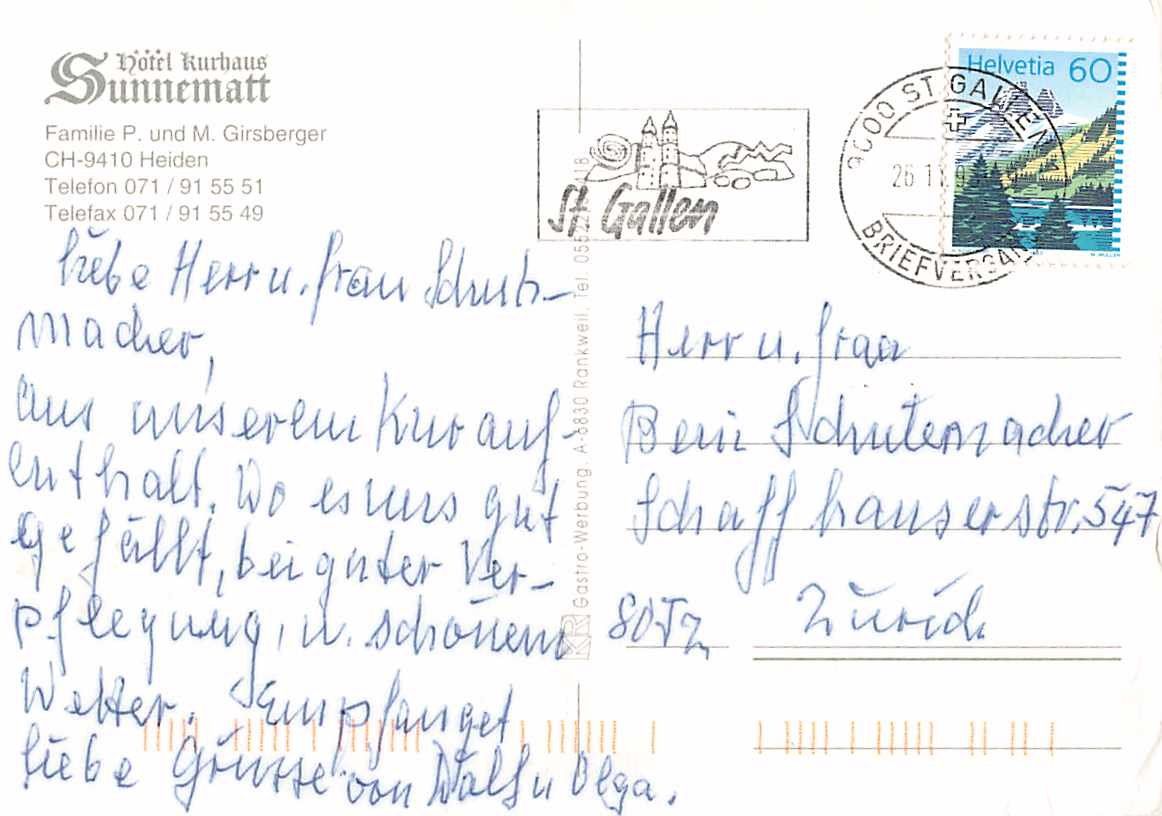 Hôtel Kurhaus
Sunnematt
Familie P. und M. Girsberger
CH-9410 Heiden
Telefon 071 / 91 55 51
Telefax 071 / 91 55 49
St. Gallen
9000 ST. GALLEN 1
BRIEFVERSAND
Helvetia 60
liebe Herr u. Frau Schutz-
macher,
aus unserem Kurauf-
enthalt. Wo es uns gut
gefällt, bei guter Ver-
pflegung, u. schönem
Wetter. Empfanget
liebe Grüsse von u Olga.
KR Gastro-Werbung, A-6830 Rankweil, Tel. 05522
Herr u. Frau
Schutzmacher
Schaffhauserstr. 547
8052 Zürich